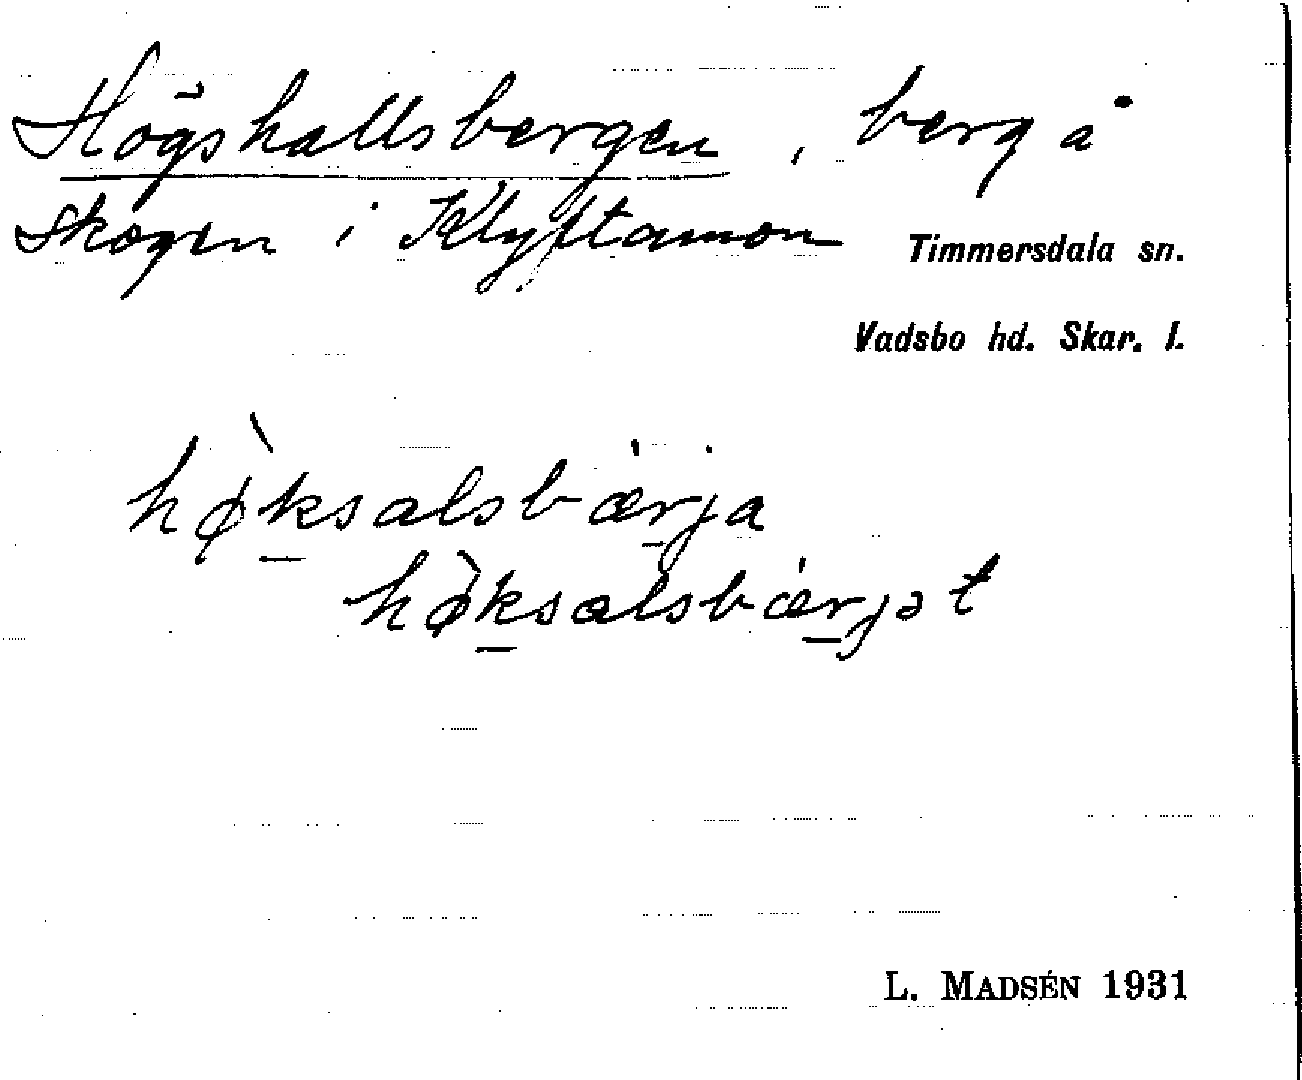 Högshallsbergen, berg å
Skogen i Klyftamon
Timmersdala sn.
Vadsbo hd. Skar. l.
hø̀ksalsbæ̍rja
hø̀ksalsbæ̍rjət
L. MADSÉN 1931